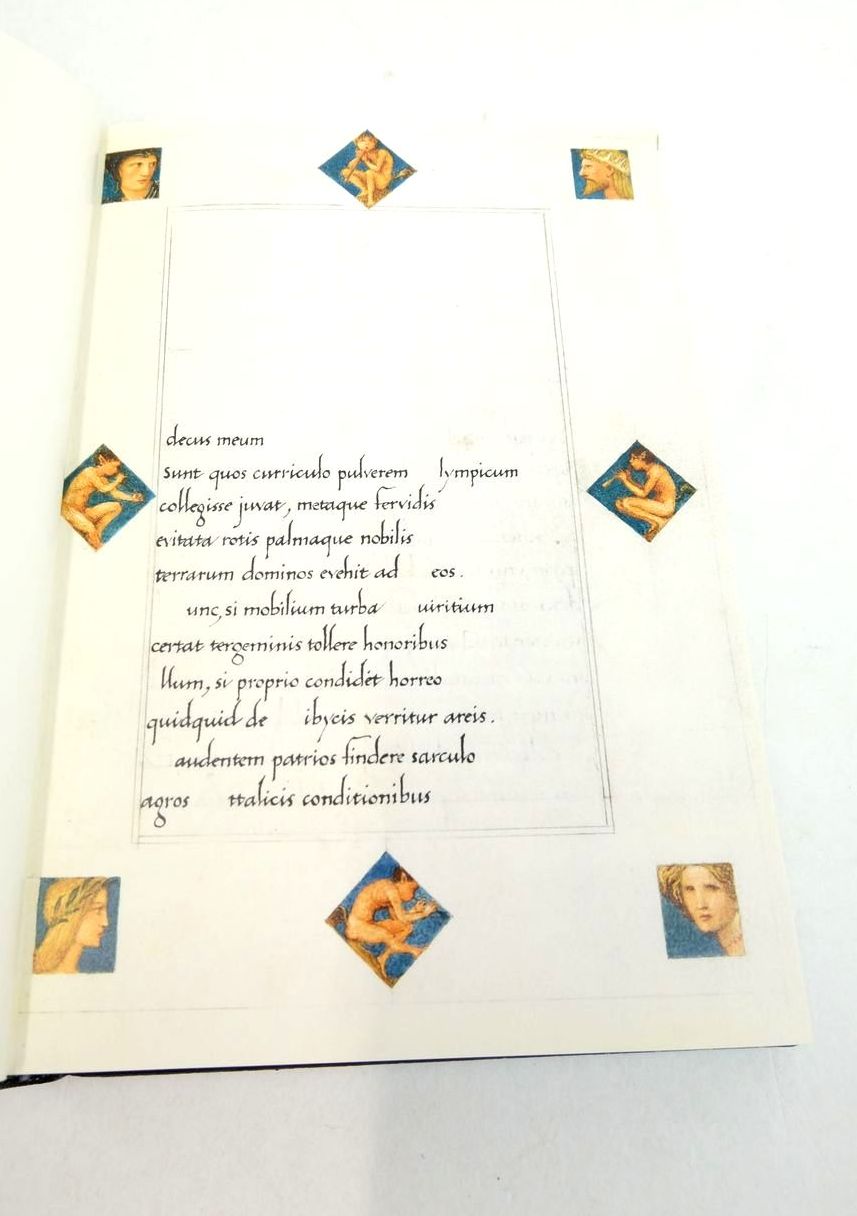 decus meum
sunt quos curriculo pulverem lympicum
collegisse juvat, metaque fervidis
evitata rotis palmaque nobilis
terrarum dominos evehit ad eos.
unc, si mobilium turba uiritium
certat tergeminis tollere honoribus
llum, si proprio condidit horreo
quidquid de ibycis verritur areis.
audentem patrios findere sarculo
agros ttalicis conditionibus